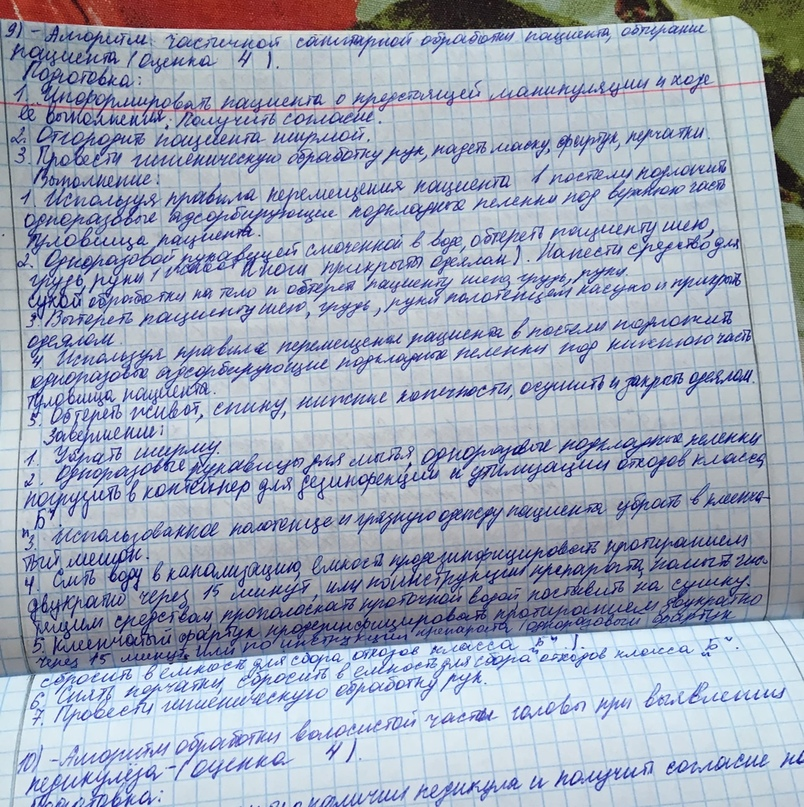 9) - Алгоритм частичной санитарной обработки пациента, обтирание
пациента (Оценка 4).
Подготовка:
1. Информировать пациента о предстоящей манипуляции и ходе
её выполнения. Получить согласие.
2. Отгородить пациента ширмой.
3. Провести гигиеническую обработку рук, надеть маску, фартук, перчатки.
Выполнение:
1 Используя правила перемещения пациента в постели подложить
одноразовые адсорбирующие подкладные пеленки под верхнюю часть
туловища пациента.
2. Одноразовой рукавицей смоченной в воде, обтереть пациенту шею,
грудь, руки (живот и ноги прикрыты одеялом). Нанести средство для
сухой обработки на тело и обтереть пациенту шею, грудь, руки.
3. Вытереть пациенту шею, грудь, руки полотенцем насухо и прикрыть
одеялом.
4. Используя правила перемещения пациента в постели подложить
одноразовые адсорбирующие подкладные пеленки под нижнюю часть
туловища пациента.
5. Обтереть живот, спину, нижние конечности, осушить и закрыть одеялом.
Завершение:
1. Убрать ширму.
2. Одноразовые рукавицы для мытья, одноразовые подкладные пеленки
погрузить в контейнер для дезинфекции и утилизации отходов класса
„Б“
3. Использованное полотенце и грязную одежду пациента убрать в клеенча-
тый мешок.
4. Слить воду в канализацию, емкость продезинфицировать протиранием
двукратно через 15 минут, или по инструкции препарата, помыть мо-
ющим средством прополоскать проточной водой поставить на сушку.
5. Клеенчатый фартук продезинфицировать протиранием двукратно
через 15 минут или по инструкции препарата (одноразовый фартук
сбросить в емкость для сбора отходов класса „Б“).
6. Снять перчатки, сбросить в емкость для сбора отходов класса „Б“.
7. Провести гигиеническую обработку рук.
10) - Алгоритм обработки волосистой части головы при выявлении
педикулёза - (оценка 4).
Подготовка:
наличии педикула и получить согласие на